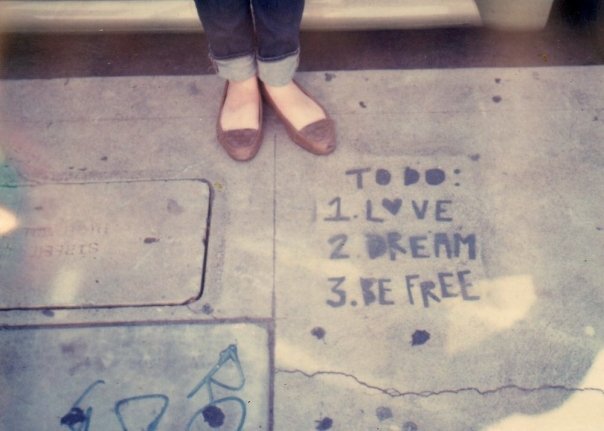 TO DO:
1. L♥VE
2. DREAM
3. BE FREE